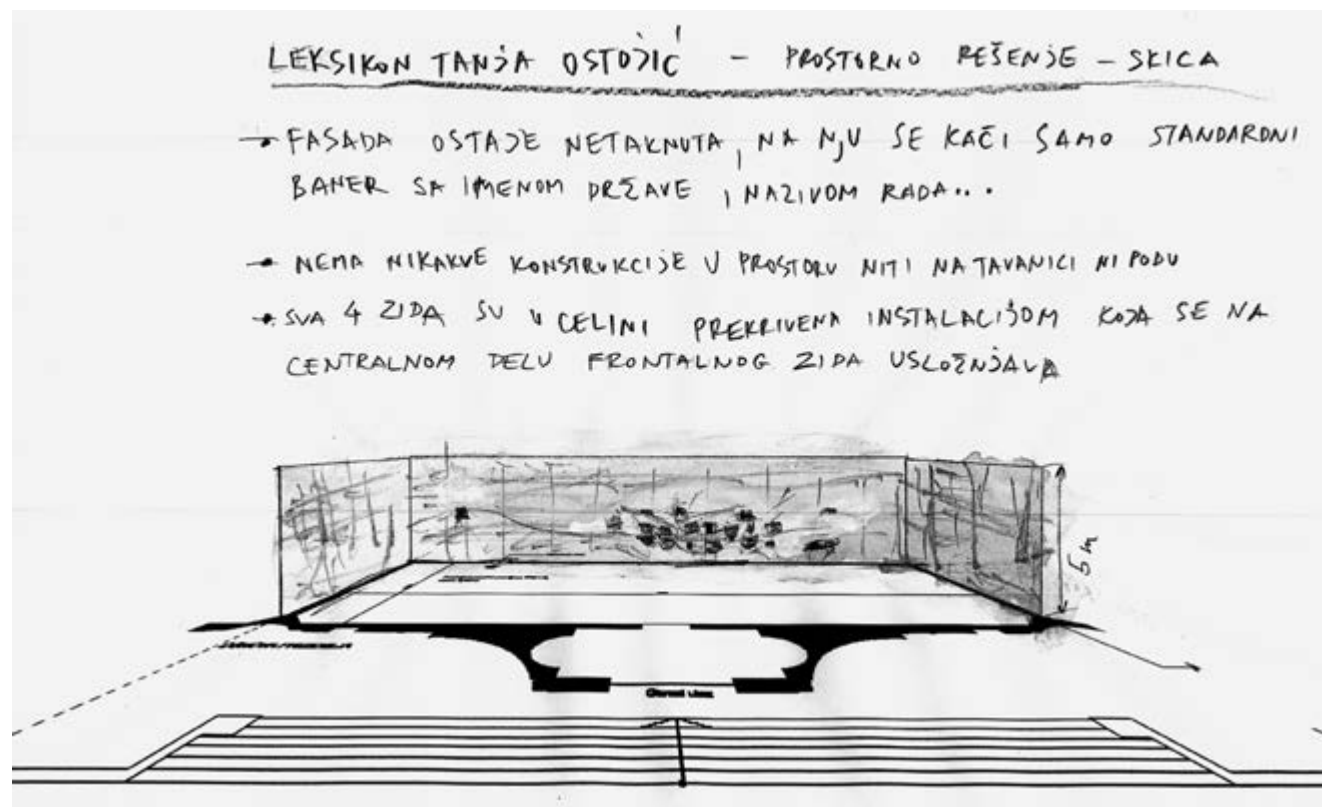 LEKSIKON TANJA OSTOJIĆ – PROSTORNO REŠENJE – SKICA
→ FASADA OSTAJE NETAKNUTA, NA NJU SE KAČI SAMO STANDARDNI
BANER SA IMENOM DRŽAVE, NAZIVOM RADA...
→ NEMA NIKAKVE KONSTRUKCIJE U PROSTORU NITI NA TAVANICI NI PODU
→ SVA 4 ZIDA SU U CELINI PREKRIVENA INSTALACIJOM KOJA SE NA
CENTRALNOM DELU FRONTALNOG ZIDA USLOŽNJAVA
5m